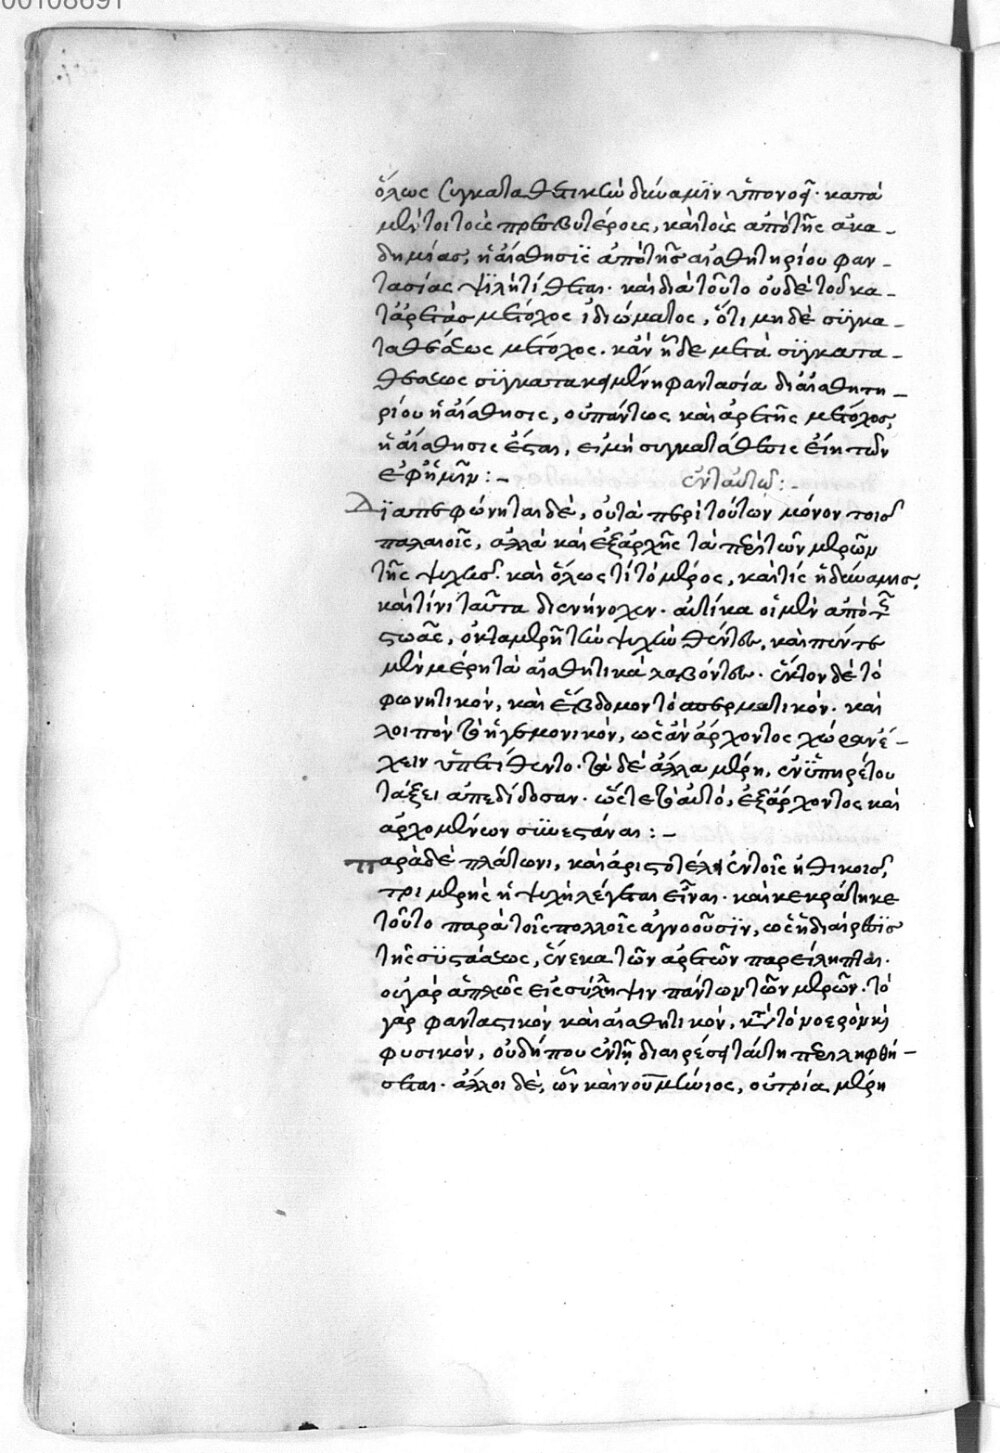 00108691
ὅλως συγκαταθετικὴν δύναμϊν ὑπονοεῖ· κατὰ
μέντοι τοῖς πρεσβυτέροις, καὶ τοῖς ἀπὸ τῆς ἀκα-
δημίας, ἡ αἴσθησις ἀπὸ τῆς αἰσθητηρίου φαν-
τασίας ψϊλὴ τίθεται· καὶ διὰ τοῦτο οὐδὲ τοῦ κα-
τ' ἀρετὰς μέτοχος ἰδιώματος, ὅτι μηδὲ σϋγκα-
ταθέσεως μέτοχος. κἂν ᾖ δὲ μετὰ σϋγκατα-
θέσεως σϋγκατακειμένη φαντασία δι' αἰσθητη-
ρίου ἡ αἴσθησις, οὐ πάντως καὶ ἀρετῆς μέτοχος,
ἡ αἴσθησις ἔσται, εἰ μὴ συγκατάθεσις εἴη τῶν
ἐφ' ἡμῖν :-
ἐν ταυτῷ :-
Δϊαπεφώνηται δὲ, οὐ τὰ περὶ τούτων μόνον τοῖς
παλαιοῖς, ἀλλὰ καὶ ἐξαρχῆς τὰ περὶ τῶν μερῶν
τῆς ψυχῆς. καὶ ὅλως τί τὸ μέρος, καὶ τίς ἡ δύναμις,
καὶ τίνι ταῦτα διενήνοχεν. αὐτίκα οἱ μὲν ἀπὸ τῆς
στοᾶς, ὀκταμερῆ τὴν ψυχὴν θέντες, καὶ πέντε
μὲν μέρη τὰ αἰσθητικὰ λαβόντες. ἕκτον δὲ τὸ
φωνητικόν, καὶ ἕβδομον τὸ σπερματικόν. καὶ
λοιπὸν τὸ ἡγεμονικόν, ὡς ἂν ἄρχοντος χώραν ἔ-
χειν ὑπετίθεντο. τὰ δὲ ἄλλα μέρη, ἐν ὑπηρέτου
τάξει ἀπεδίδοσαν. ὥστε τὸ αὐτὸ, ἐξ ἄρχοντος καὶ
ἀρχομένων σϋνεστάναι :-
Παρὰ δὲ πλάτωνι, καὶ ἀριστοτέλει ἐν τοῖς ἠθικοῖς,
τριμερὴς ἡ ψυχὴ λέγεται εἶναι. καὶ κεκράτηκε
τοῦτο παρὰ τοῖς πολλοῖς ἀγνοοῦσϊν, ὡς ἡ διαίρεσϊς
τῆς σϋστάσεως, ἕνεκα τῶν ἀρετῶν παρείληπται.
οὐ γὰρ ἁπλῶς εἰς σύλληψιν πάντων τῶν μερῶν. τὸ
γὰρ φανταστικὸν καὶ αἰσθητικόν, καὶ τὸ νοερὸν καὶ
φυσικόν, οὐ δήπου ἐν τῇ διαιρέσει ταύτῃ περιληφθή-
σεται. ἄλλοι δὲ, ὧν καὶ νουμήνιος, οὐ τρία μέρη